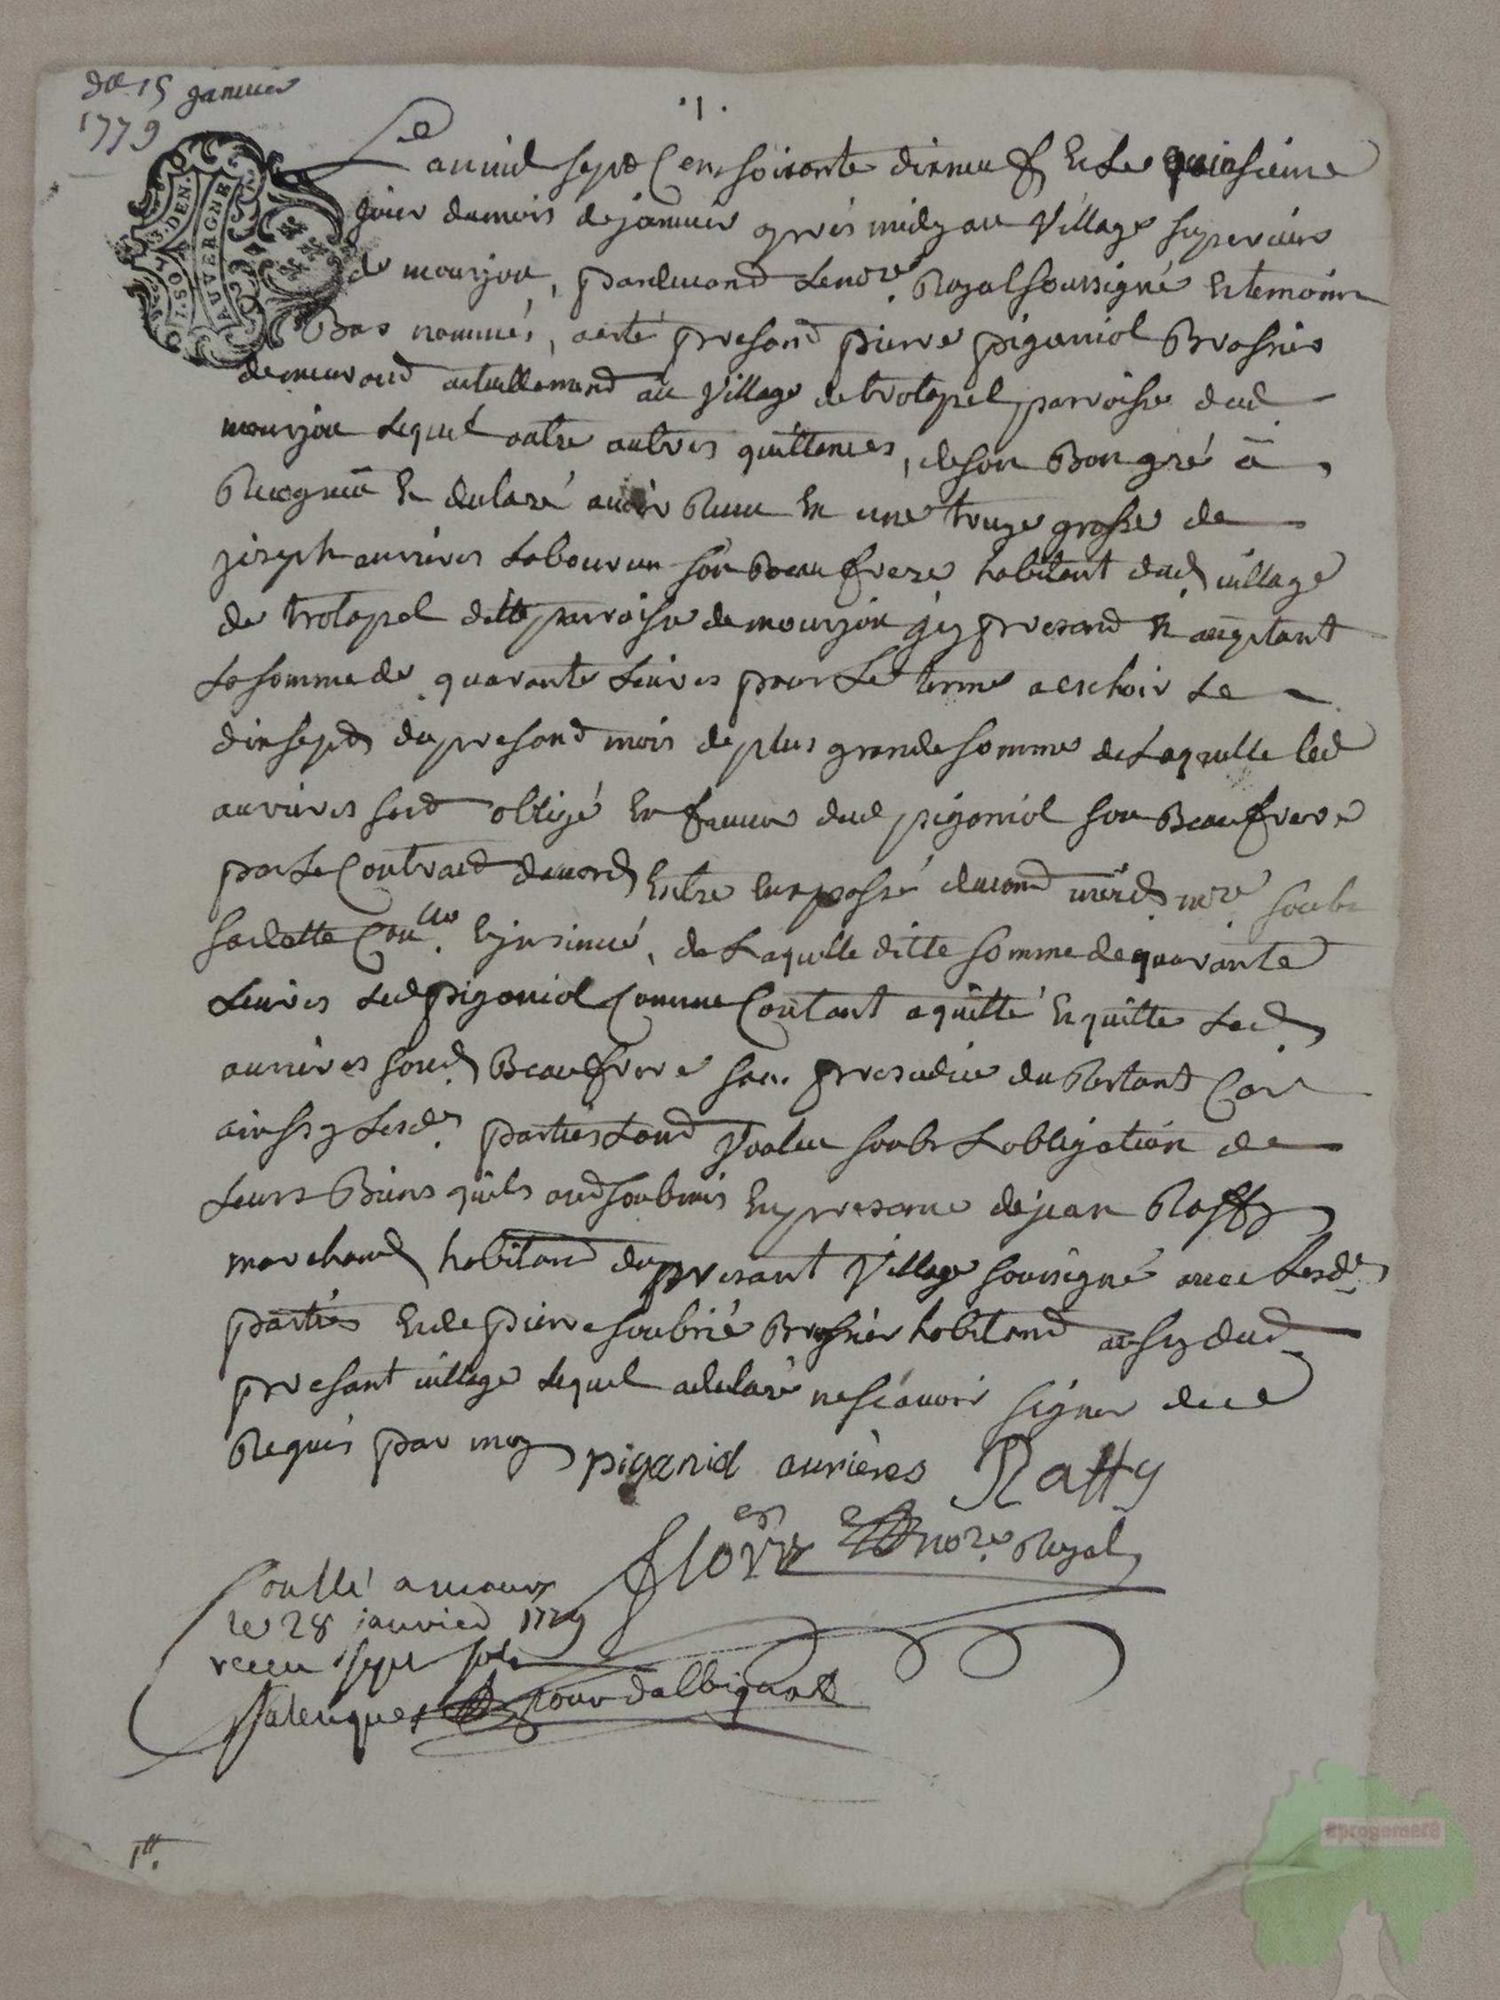 du 15 janvier
1779
.1.
1.SOL 3.DEN.
AUVERGNE
L'an mil sept cens soixante dixneuf et le quinsieme
jour du mois de janvier apres midy au village superieur
de mourjou, pardevand le no.re Royal soussigné et temoins
Bas nommés, a esté presand pierre piganiol Brassier
demeurand actuellemend au village de trotapel parroisse dud
mourjou lequel outre autres quittances, de son Bon gré a
Recognu et declaré avoir Reçu en une truye grosse de
joseph aurieres laboureur son Beaufrere habitant dud village
de trotapel ditte parroisse de mourjou jcy presand et acceptant
la somme de quarante livres pour le terme a eschoir le
dixsept du presand mois de plus grande somme de laquelle led
aurieres sest obligé en faveur dud piganiol son Beaufrere
par le contract d'accord entre eux passé devand no.re
sadatte con.llé et jnsinué, de laquelle ditte somme de quarante
livres led piganiol comme contant a quitté et quitte led
aurieres sond. Beaufrere sans presudice du Restant car
ainsy lesd. parties lond voulu soubs lobligation de
leurs Biens quils ond soubmis en presence de jean Raffy
marchand habitand du presant village soussigné avec lesd.
parties et de pierre soubrié Brassier habitand aussy dud
presant village lequel a declaré ne scavoir signer de ce
Requis par moy
piganiol aurières Raffy
flory no.re Royal
Con.llé a maurs
le 28 janvier 1779
receu sept sols
pour dalbignat
1.tt
eprogomer8